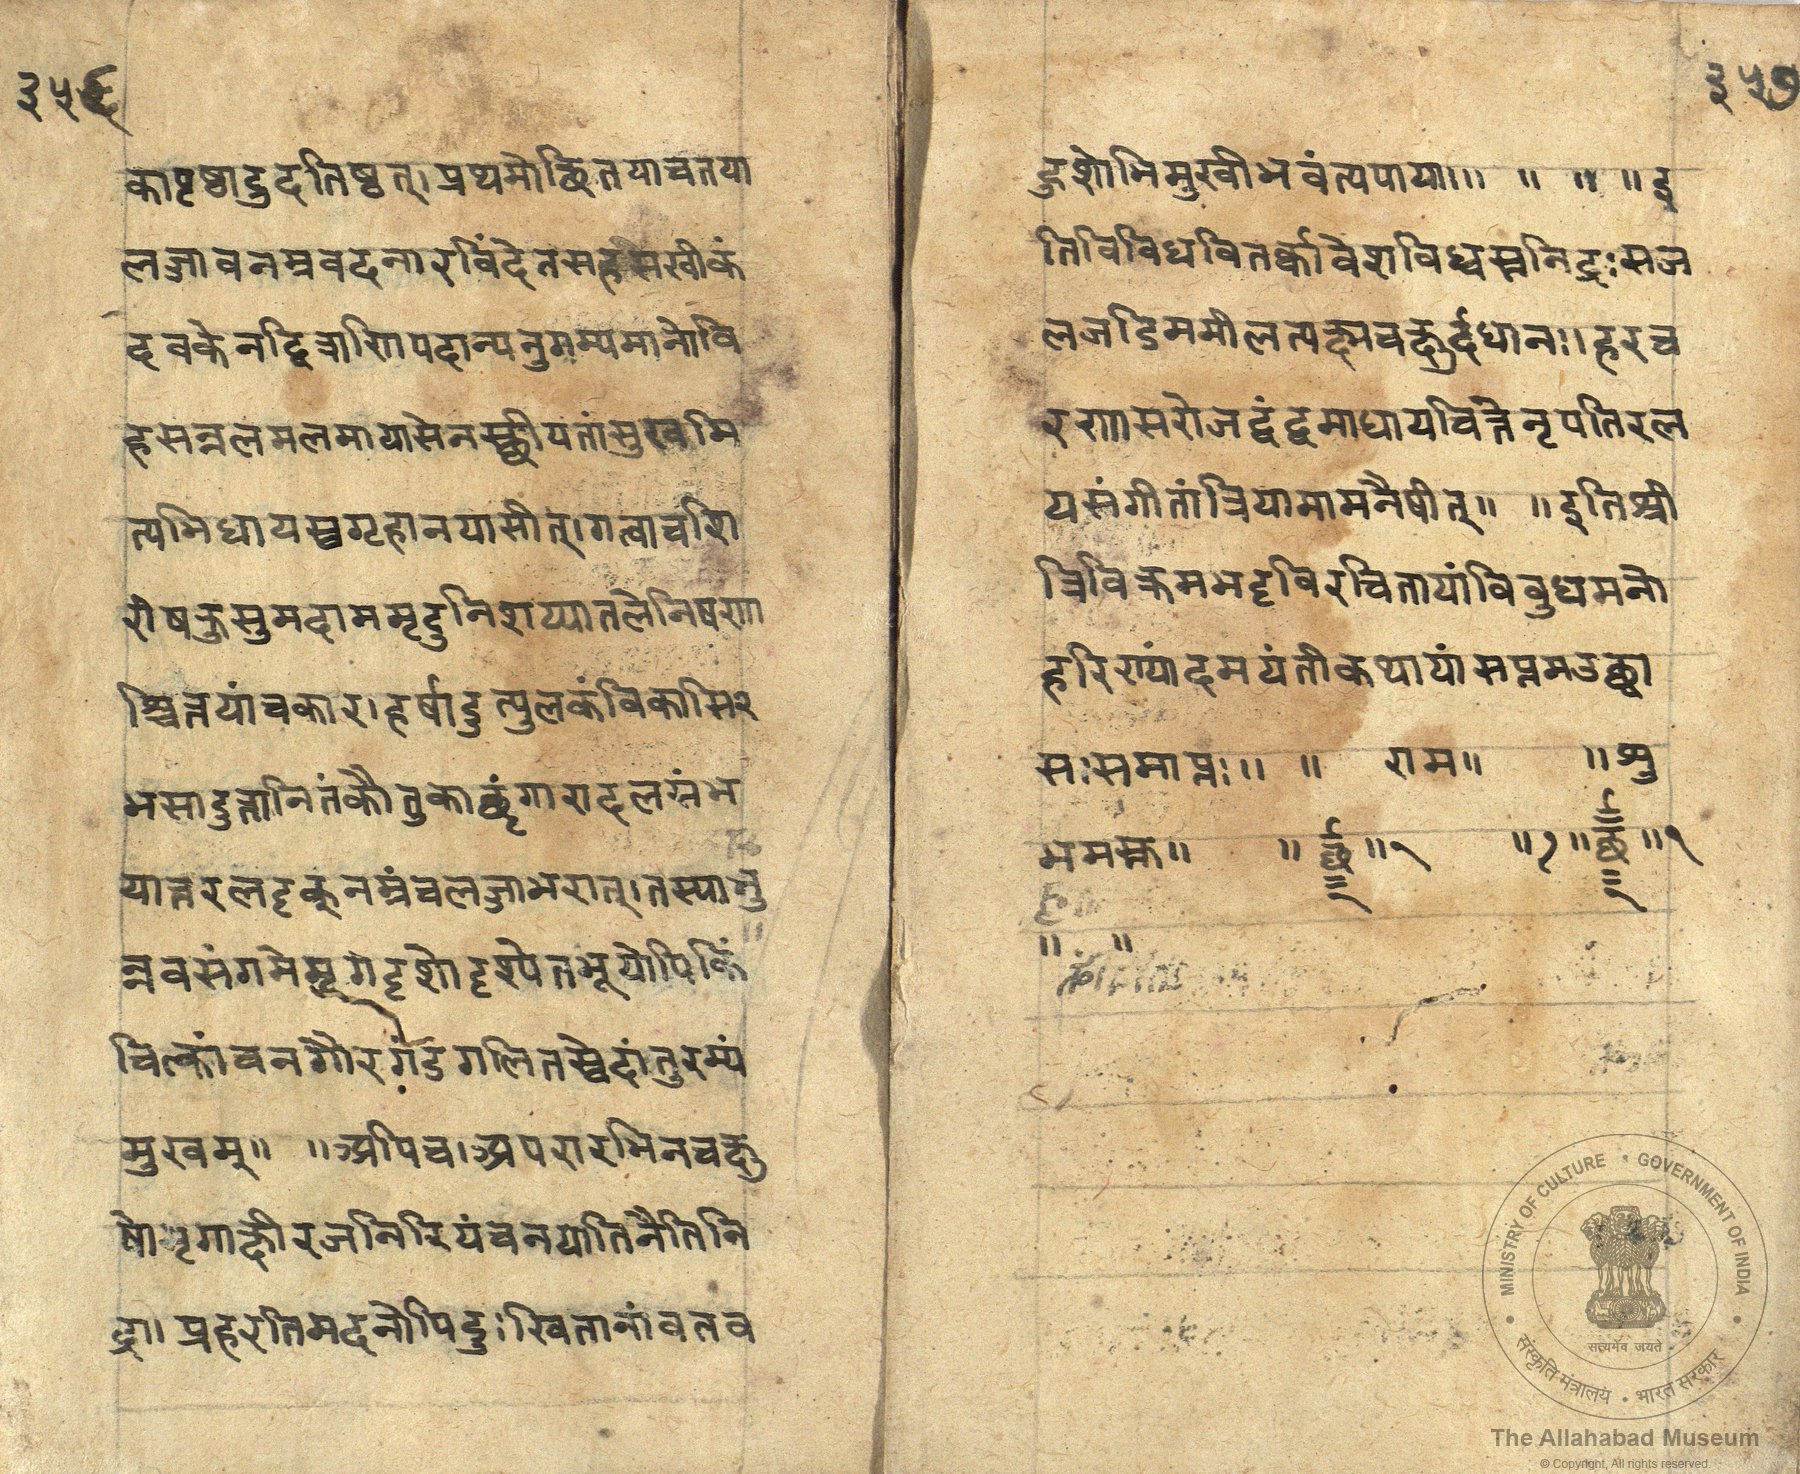 ३५६
कापृष्ठादुदतिष्ठत्।प्रथमोत्थितयाचतया
लज्जावनम्रवदनारविंदेतसहसखीकं
दवकेनद्वित्राणिपदान्यनुगम्यमानोवि
हसन्नलमलमायासेनस्थीयतांसुखमि
त्यभिधायस्वगृहानयासीत्।गत्वाचशि
रीषकुसुमदाममृदुनिशय्यातलेनिषण्ण
श्चिन्तयांचकार।हर्षादुत्पुलकंविकासिर
भसादुत्तानितंकौतुकाच्छृंगारादलसंभ
यात्तरलदृक्नम्रंचलज्जाभरात्।तस्यास्तु
न्नवसंगमेमृगदृशोदृश्येतभूयोपिकिं
चित्कांचनगौरगंडगलितस्वेदांतुरम्यं
मुखम्॥ ॥अपिच।अपसरतिनचक्षु
षोमृगाक्षीरजनिरियंचनयातिनैतिनि
द्रा।प्रहरतिमदनोपिदुःखितानांबतब
३५७
हुशोभिमुखीभवंत्यपायाः॥ ॥ ॥ ॥इ
तिविविधवितर्कावेशविध्वस्तनिद्रःसज
लजडिममीलत्पक्ष्मचक्षुर्दधानः।हरच
रणसरोजद्वंद्वमाधायचित्तेनृपतिरल
यसंगीतांत्रियामामनैषीत्॥ ॥इतिश्री
त्रिविक्रमभट्टविरचितायांविबुधमनो
हरिण्यांदमयंतीकथायांसप्तमउच्छ्वा
सःसमाप्तः॥ ॥ राम॥ ॥शु
भमस्तु॥ ॥छ॥ ॥ ॥छ॥
॥ ॥
MINISTRY OF CULTURE • GOVERNMENT OF INDIA
सत्यमेव जयते
संस्कृति मंत्रालय • भारत सरकार
The Allahabad Museum
© Copyright, All rights reserved.